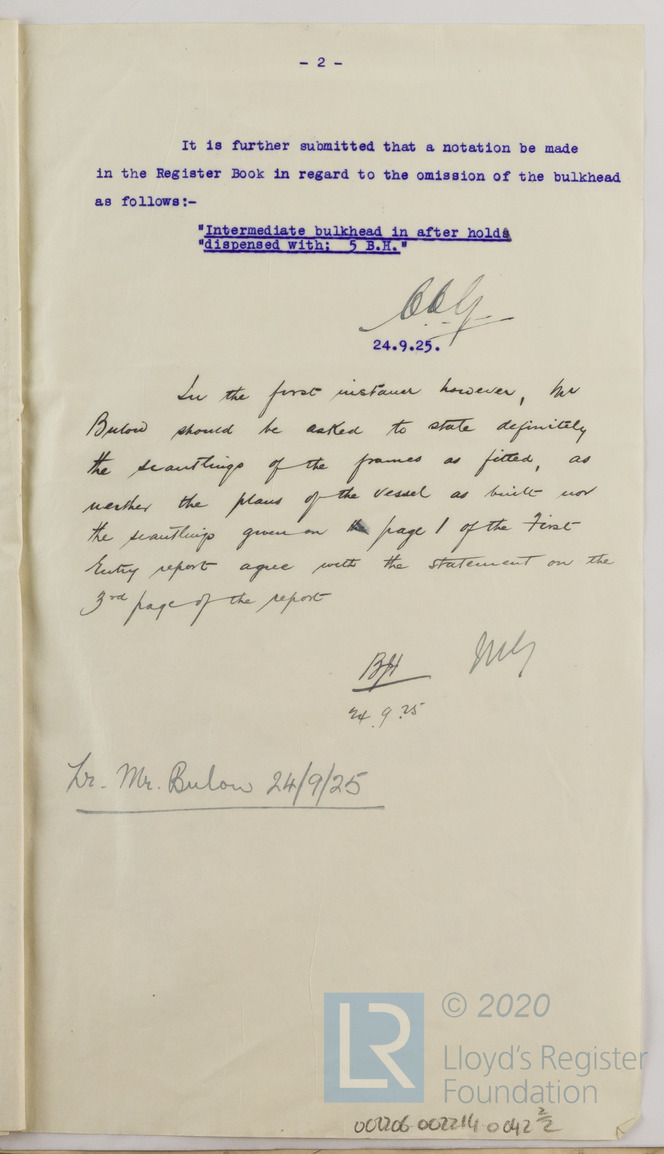 - 2 -
It is further submitted that a notation be made
in the Register Book in regard to the omission of the bulkhead
as follows:-
"Intermediate bulkhead in after holds
"dispensed with; 5 B.H."
24.9.25.
In the first instance however, Mr
Bulow should be asked to state definitely
the scantlings of the frames as fitted, as
neither the plans of the vessel as built nor
the scantlings given on page 1 of the First
Entry report agree with the statement on the
3rd page of the report
BH
24.9.25
Lr. Mr. Bulow 24/9/25
LR
© 2020
Lloyd's Register
Foundation
002206-002214-0042 2/2